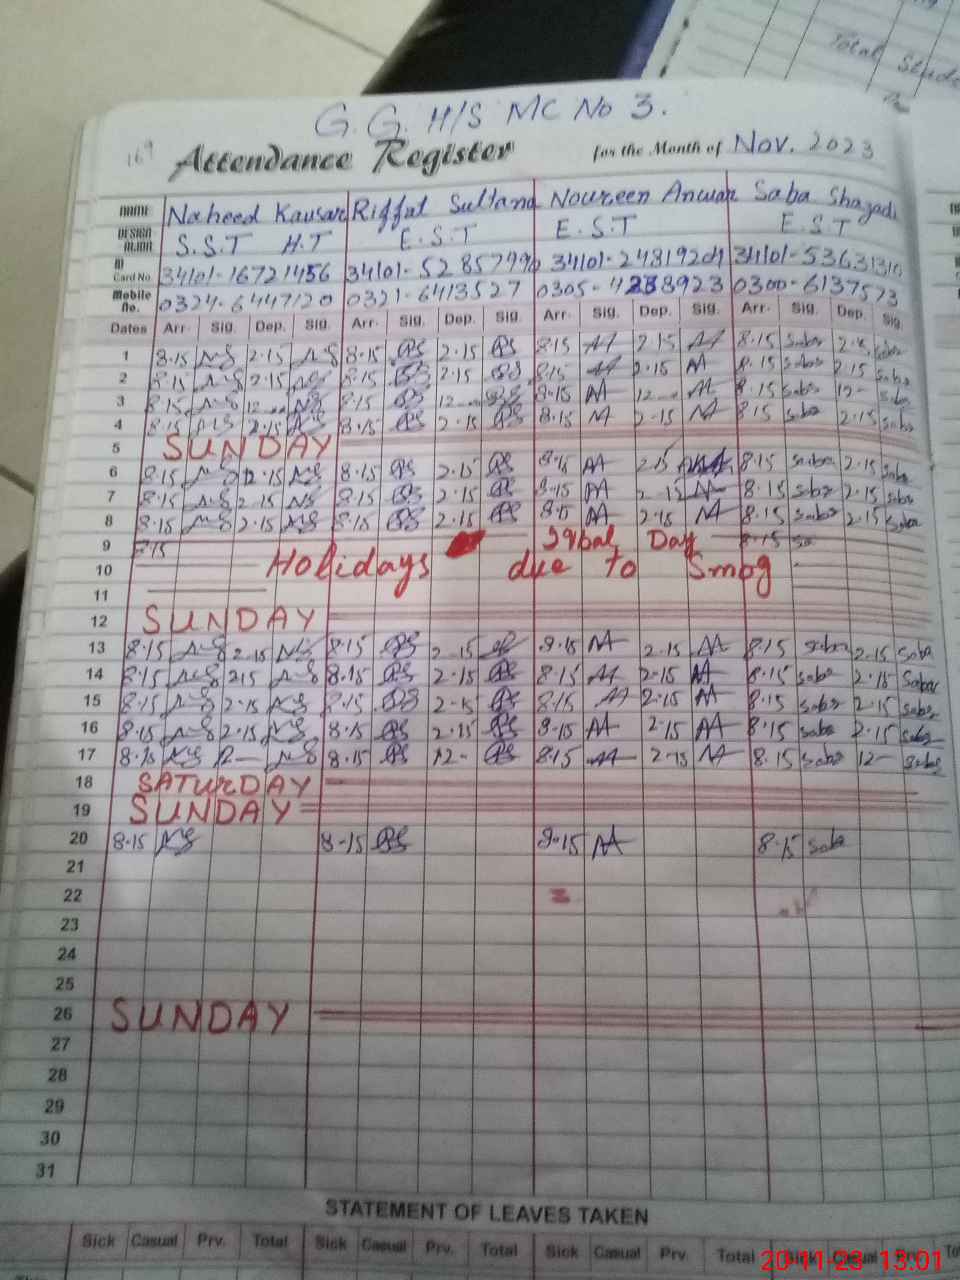 Total Stude
G.G. H/S MC No 3.
169 Attendance Register for the Month of Nov. 2023
NAME Naheed Kausar Riffat Sultana Noureen Anwar Saba Shazadi
DESIGN S.S.T H.T E.S.T E.S.T E.S.T
ID Card No. 34101-16721456 34101-5285799 34101-24819204 34101-5363131
Mobile No. 0324-6447120 0321-6413527 0305-4238923 0300-6137573
Dates Arr. Sig. Dep. Sig. Arr. Sig. Dep. Sig. Arr. Sig. Dep. Sig. Arr. Sig. Dep. Sig.
1 8.15 NS 2.15 NS 8.15 RS 2.15 RS 8.15 AA 2.15 AA 8.15 saba saba
2 8.15 NS 2.15 NS 8.15 RS 2.15 RS 8.15 AA 2.15 AA 8.15 saba 2.15 saba
3 8.15 NS 12 NS 8.15 RS 12 RS 8.15 AA 12 AA 8.15 saba 12- saba
4 8.15 NS 2.15 NS 8.15 RS 2.15 RS 8.15 AA 2-15 AA 8.15 saba 2.15 saba
5 SUNDAY
6 8.15 NS 2.15 NS 8.15 RS 2.15 RS 8.15 AA 2.15 8.15 saba 2.15 saba
7 8.15 NS 2.15 NS 8.15 RS 2.15 RS 8.15 AA 2-15 AA 8.15 saba 2.15 saba
8 8.15 NS 2.15 NS 8.15 RS 2.15 RS 8.15 AA 2.15 AA 8.15 saba 2.15 saba
9 Iqbal Day 8.15 sa
10 Holidays due to Smog
11
12 SUNDAY
13 8.15 NS 2.15 NS 8.15 RS 2.15 8.15 AA 2.15 AA 8.15 saba 2.15 saba
14 8.15 NS 2.15 NS 8.15 RS 2.15 RS 8.15 AA 2.15 AA 8.15 saba 2.15 saba
15 8.15 NS 2.15 NS 8.15 RS 2.15 RS 8.15 AA 2.15 AA 8.15 saba 2.15 saba
16 8.15 NS 2.15 NS 8.15 RS 2.15 RS 8.15 AA 2.15 AA 8.15 saba 2.15 saba
17 8.15 NS 12 NS 8.15 RS 12- RS 8.15 AA 2-15 AA 8.15 saba 12- saba
18 SATURDAY
19 SUNDAY
20 8.15 NS 8-15 RS 8-15 AA 8.15 saba
21
22
23
24
25
26 SUNDAY
27
28
29
30
31
STATEMENT OF LEAVES TAKEN
Sick Casual Prv. Total Sick Casual Prv. Total Sick Casual Prv. Total Sick Casual Prv.
20-11-23 13:01